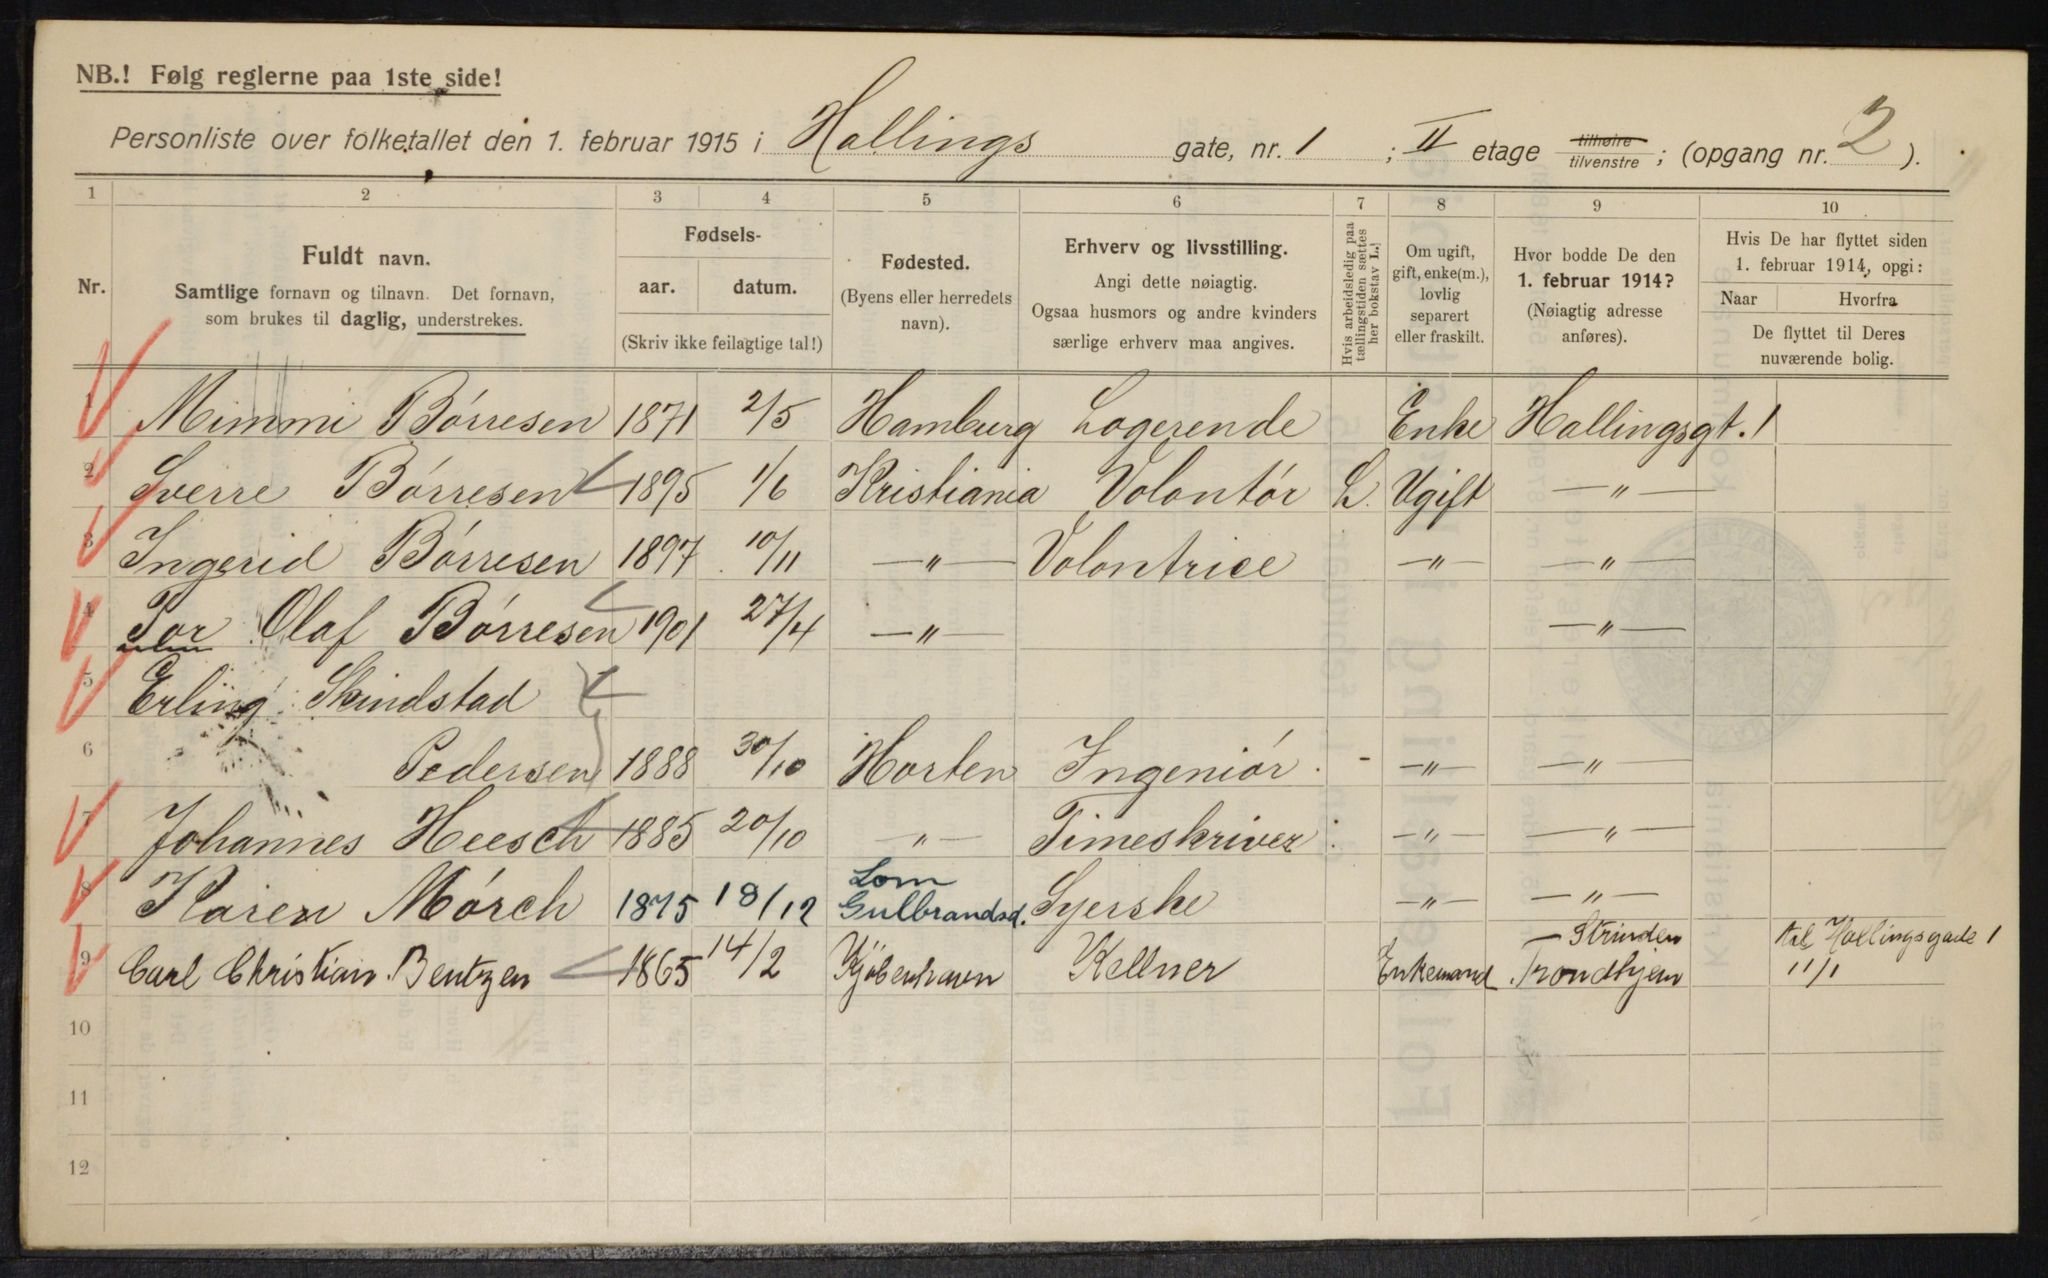 NB.! Følg reglerne paa 1ste side!
Personliste over folketallet den 1. februar 1915 i Hallings gate, nr. 1 ; II etage tilhøire tilvenstre ; (opgang nr. 2 ).
1 2 3 4 5 6 7 8 9 10
Nr.
Fuldt navn.
Samtlige fornavn og tilnavn. Det fornavn,
som brukes til daglig, understrekes.
Fødsels-
aar. datum.
(Skriv ikke feilagtige tal!)
Fødested.
(Byens eller herredets
navn).
Erhverv og livsstilling.
Angi dette nøiagtig.
Ogsaa husmors og andre kvinders
særlige erhverv maa angives.
Hvis arbeidsledig paa
tællingstiden sættes
her bokstav L.!
Om ugift,
gift, enke(m.),
lovlig
separert
eller fraskilt.
Hvor bodde De den
1. februar 1914?
(Nøiagtig adresse
anføres).
Hvis De har flyttet siden
1. februar 1914, opgi:
Naar Hvorfra
De flyttet til Deres
nuværende bolig.
1 Mimmi Børresen 1871 2/5 Hamburg Logerende Enke Hallingsgt. 1
2 Sverre Børresen 1895 1/6 Kristiania Volontør L. Ugift — „ —
3 Ingerid Børresen 1897 10/11 — „ — Volontrice — „ — — „ —
4 Tor Olaf Børresen 1901 27/4 — „ — — „ —
5 Erling Skindstad
6 Pedersen 1888 30/10 Horten Ingeniør - — „ — — „ —
7 Johannes Heesch 1885 20/10 — „ — Timeskriver — „ — — „ —
8 Karen Mørch 1875 18/12 Lom Gulbrandsd. Syerske — „ — — „ —
9 Carl Christian Bentzen 1865 14/2 Kjøbenhavn Kellner Enkemand Strinden Trondhjem til Hallingsgade 1 11/1
10
11
12